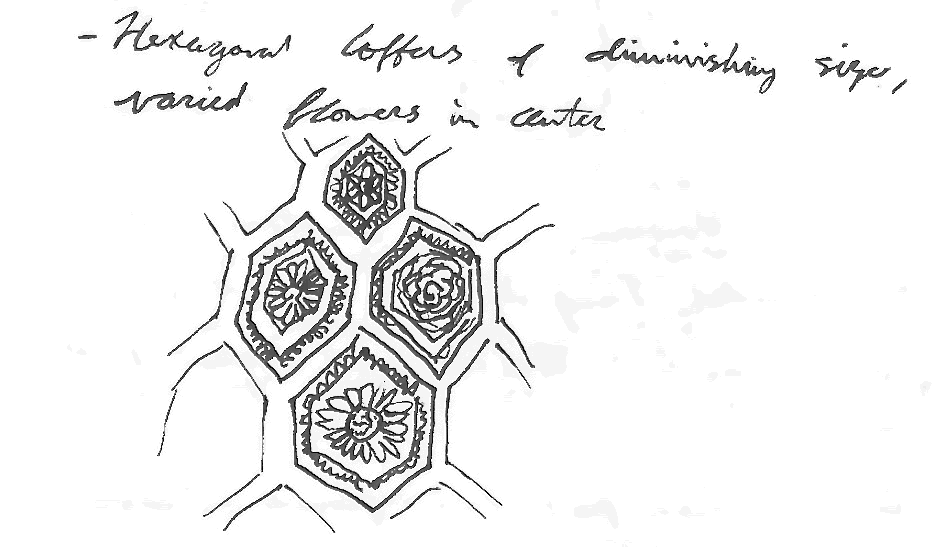 - Hexagonal Coffers of diminishing size,
varied flowers in center